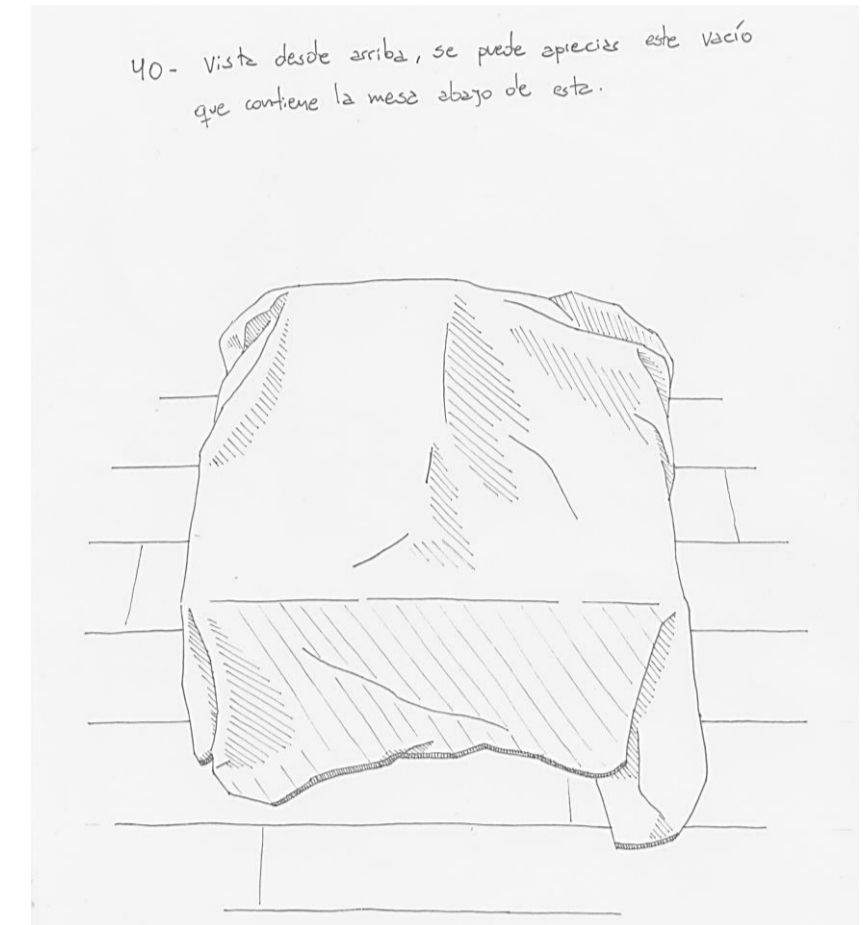 40- Vista desde arriba, se puede apreciar este vacío
que contiene la mesa abajo de esta.